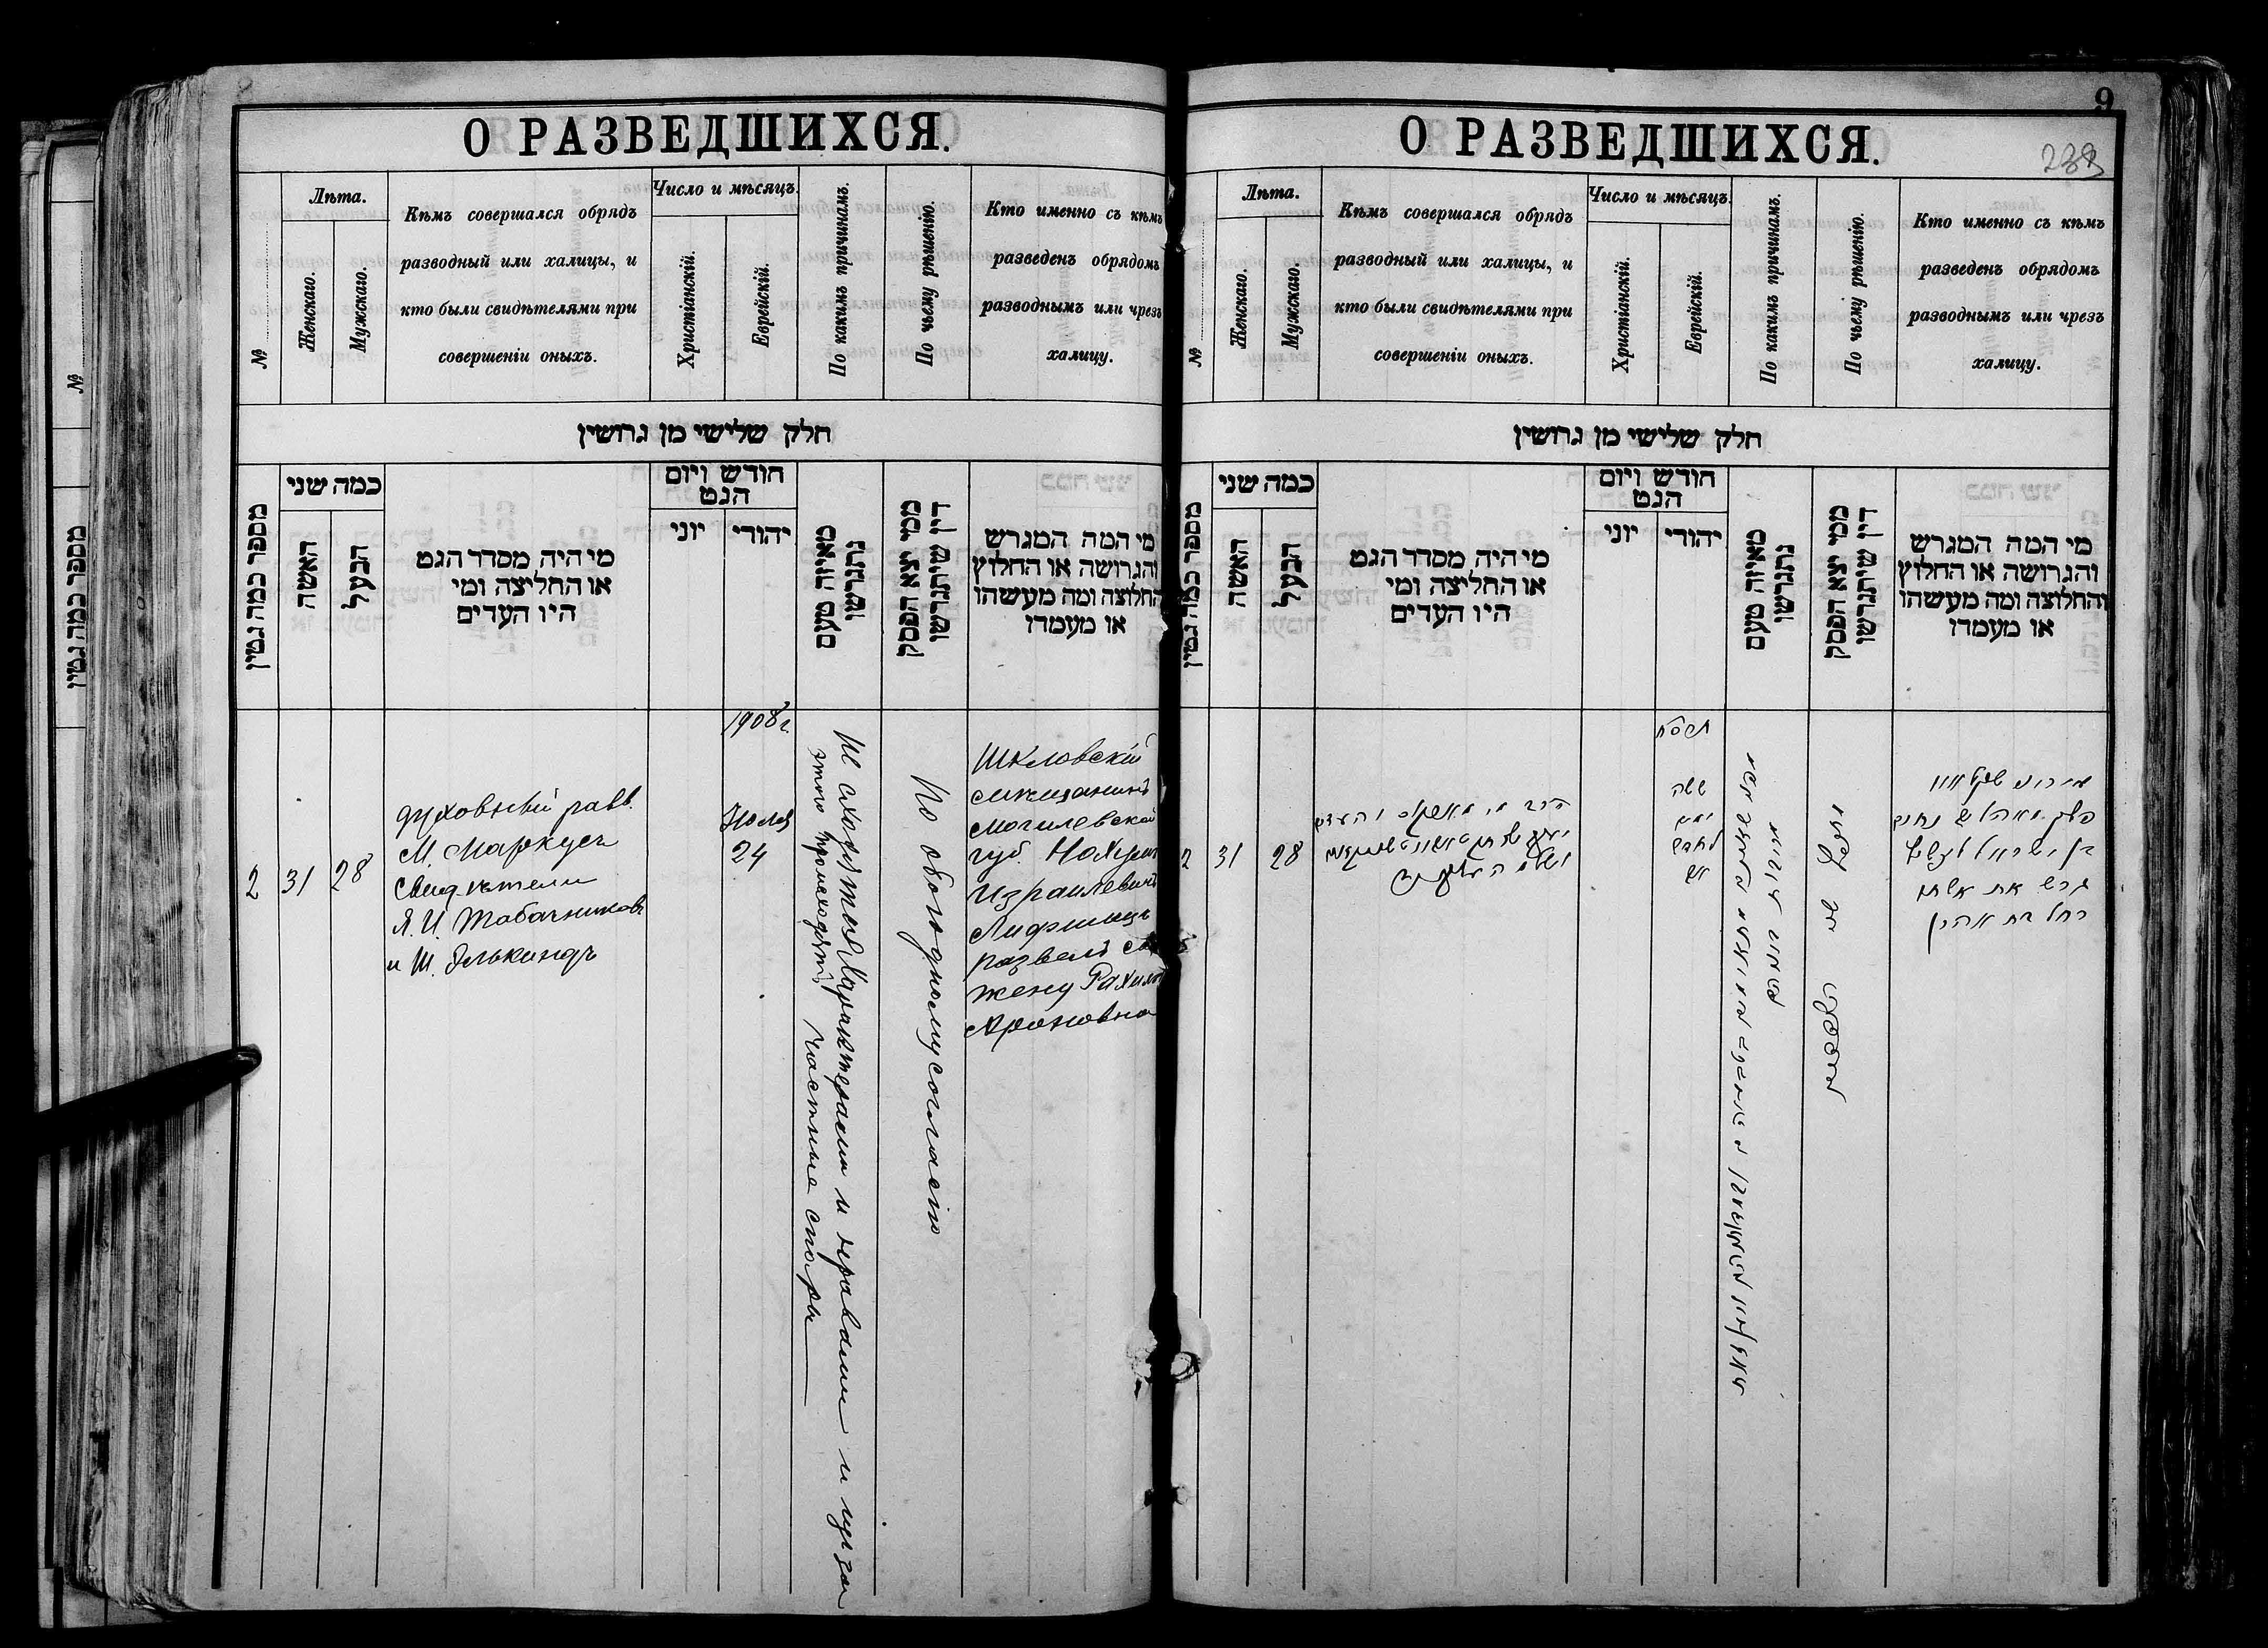 О РАЗВЕДШИХСЯ.
№
Лѣта.
Женскаго.
Мужскаго.
Кѣмъ совершался обрядъ
разводный или халицы, и
кто были свидѣтелями при
совершеніи оныхъ.
Число и мѣсяцъ.
Христіанскій.
Еврейскій.
По какимъ причинамъ.
По чьему рѣшенію.
Кто именно съ кѣмъ
разведенъ обрядомъ
разводнымъ или чрезъ
халицу.
חלק שלישי מן גרושין
מספר כמה גטין
כמה שני
האשה
הבעל
מי היה מסדר הגט
או החליצה ומי
היו העדים
חודש ויום
הגט
יוני
יהודי
מאיזה טעם
נתגרשו
ממי יצא הפסק
דין שיתגרשו
מי המה המגרש
והגרושה או החלוץ
והחלוצה ומה מעשהו
או מעמדו
2
31
28
духовный равв.
М. Маркусъ
Свидѣтели
Я. И. Табачниковъ
и Ш. Элькиндъ
1908 г.
Іюля
24
Не сходятся характерами и нравами и изъ за
этого происходятъ частные споры
По обоюдному согласію
Шкловскій
мѣщанинъ
Могилевской
губ. Нохумъ
Израилевичъ
Лифшицъ
развелъ
жену Рахиль
Ароновна
9
О РАЗВЕДШИХСЯ.
238
№
Лѣта.
Женскаго.
Мужскаго.
Кѣмъ совершался обрядъ
разводный или халицы, и
кто были свидѣтелями при
совершеніи оныхъ.
Число и мѣсяцъ.
Христіанскій.
Еврейскій.
По какимъ причинамъ.
По чьему рѣшенію.
Кто именно съ кѣмъ
разведенъ обрядомъ
разводнымъ или чрезъ
халицу.
חלק שלישי מן גרושין
מספר כמה גטין
כמה שני
האשה
הבעל
מי היה מסדר הגט
או החליצה ומי
היו העדים
חודש ויום
הגט
יוני
יהודי
מאיזה טעם
נתגרשו
ממי יצא הפסק
דין שיתגרשו
מי המה המגרש
והגרושה או החלוץ
והחלוצה ומה מעשהו
או מעמדו
2
31
28
ששה
ימים
לחדש
נחום
בן ישראל ליפשיץ
גרש את אשתו
רחל בת אהרן